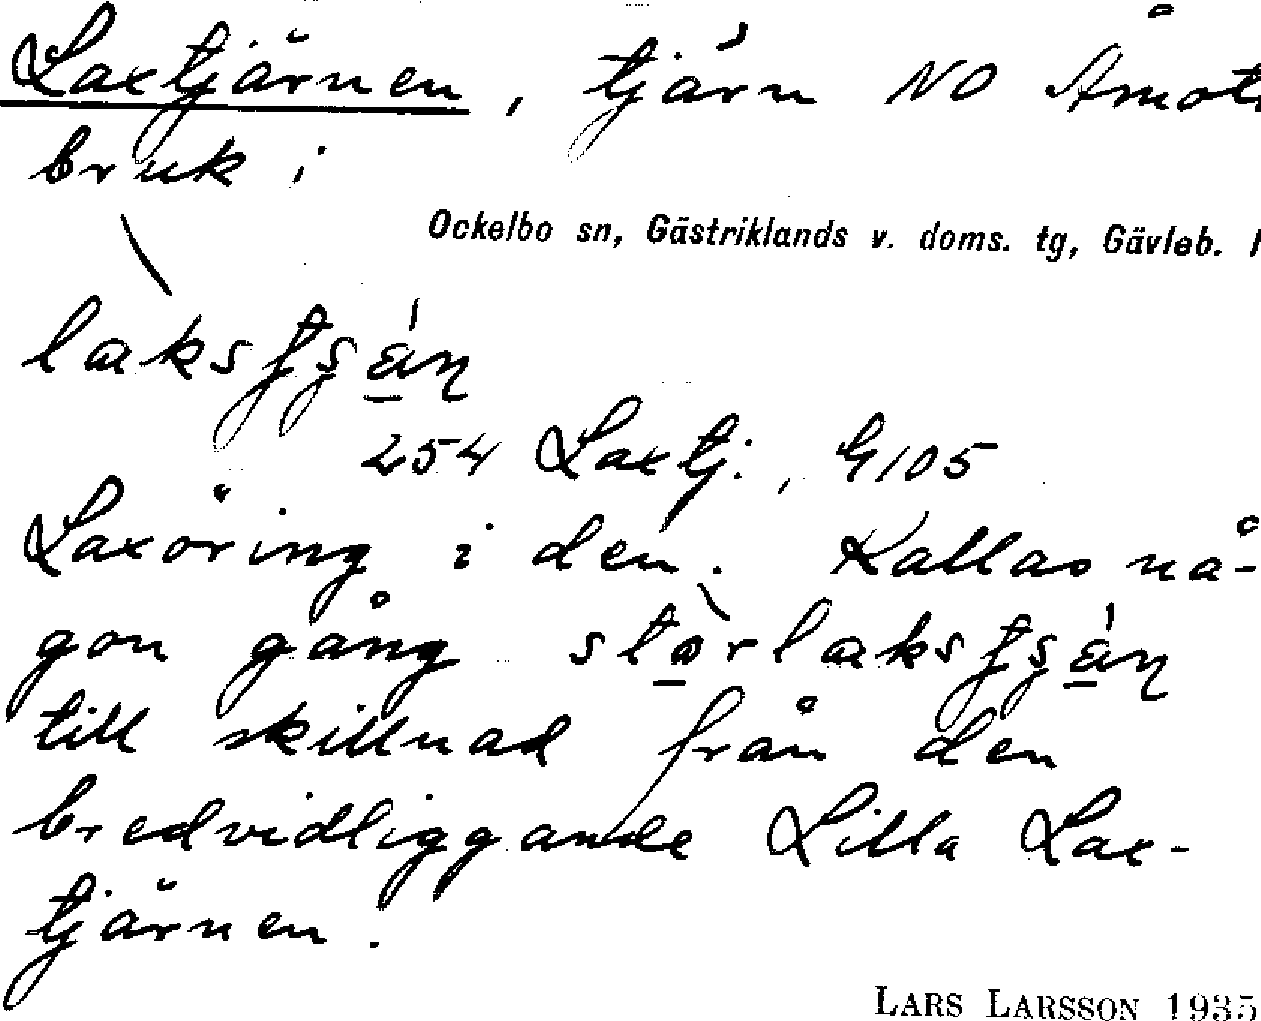 Laxtjärnen, tjärn NO Åmots
bruk i
Ockelbo sn, Gästriklands v. doms. tg, Gävleb. l
254 Laxtj., G105
Laxöring i den. Kallas nå-
gon gång
till skillnad från den
bredvidliggande Lilla Lax-
tjärnen.
LARS LARSSON 1935